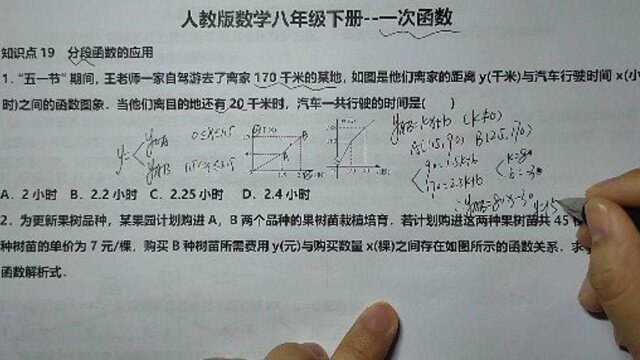 人教版数学八年级下册--一次函数
知识点 19 分段函数的应用
1. “五一节”期间，王老师一家自驾游去了离家 170 千米的某地，如图是他们离家的距离 y(千米)与汽车行驶时间 x(小
时)之间的函数图象．当他们离目的地还有 20 千米时，汽车一共行驶的时间是( )
A．2 小时 B．2.2 小时 C．2.25 小时 D．2.4 小时
2. 为更新果树品种，某果园计划购进 A，B 两个品种的果树苗栽植培育．若计划购进这两种果树苗共 45
种树苗的单价为 7 元/棵，购买 B 种树苗所需费用 y(元)与购买数量 x(棵)之间存在如图所示的函数关系．
函数解析式．
yAB=kx+b (k≠0)
A(1.5,90) B(2.5,170)
90=1.5k+b
170=2.5k+b
k=80
b=-30